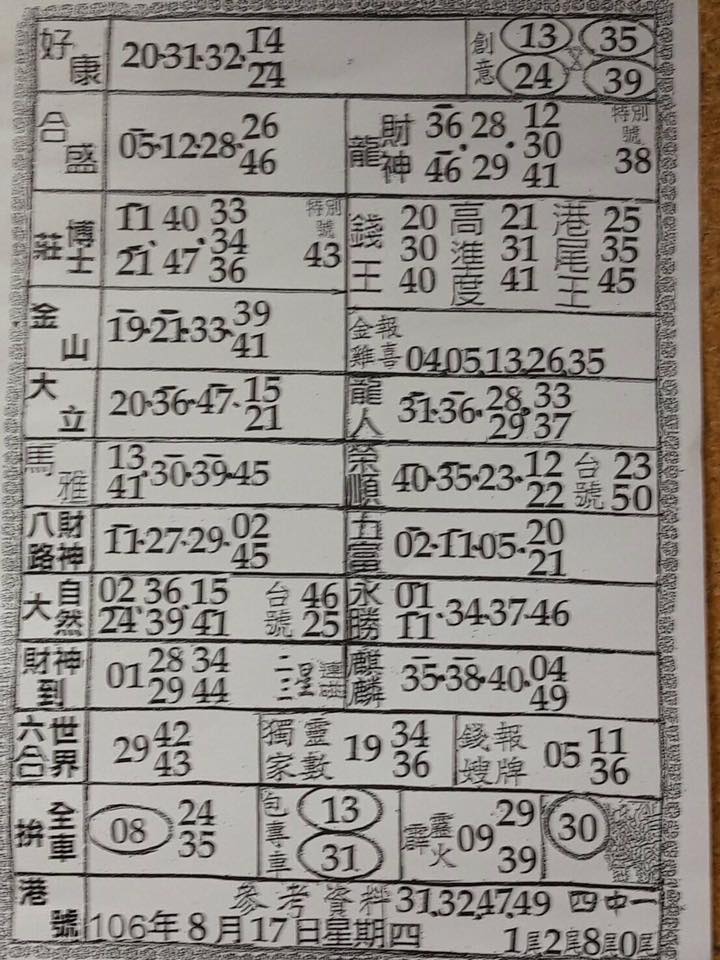 好康 20·31·32·14 24 創意 13 35 24 39
合盛 05·12·28·26 46
財神龍 36 46·28 29·12 30 41 特別號 38
博士莊 11 21·40 47·33 34 36 特別號 43
錢王 20 30 40 高進度 21 31 41 港尾王 25 35 45
金山 19·21·33·39 41
金雞報喜 04,05,13,26,35
大立 20·36·47·15 21
龍人 31·36·28 29·33 37
馬雅 13 41·30·39·45
榮順 40·35·23·12 22 台號 23 50
八路財神 11·27·29·02 45
五富 02·11·05·20 21
大自然 02 24·36 39·15 41 台號 46 25
永勝 01 11·34·37·46
財神到 01 28 29 34 44 二三星
麒麟 35·38·40·04 49
六合世界 29 42 43
獨家靈數 19 34 36
錢嫂報牌 05 11 36
拚全車 08 24 35
包專車 13 31
霹靂火 09 29 39
30
港號 參考資料 31,32,47,49 四中一
106年8月17日星期四 1尾2尾8尾0尾